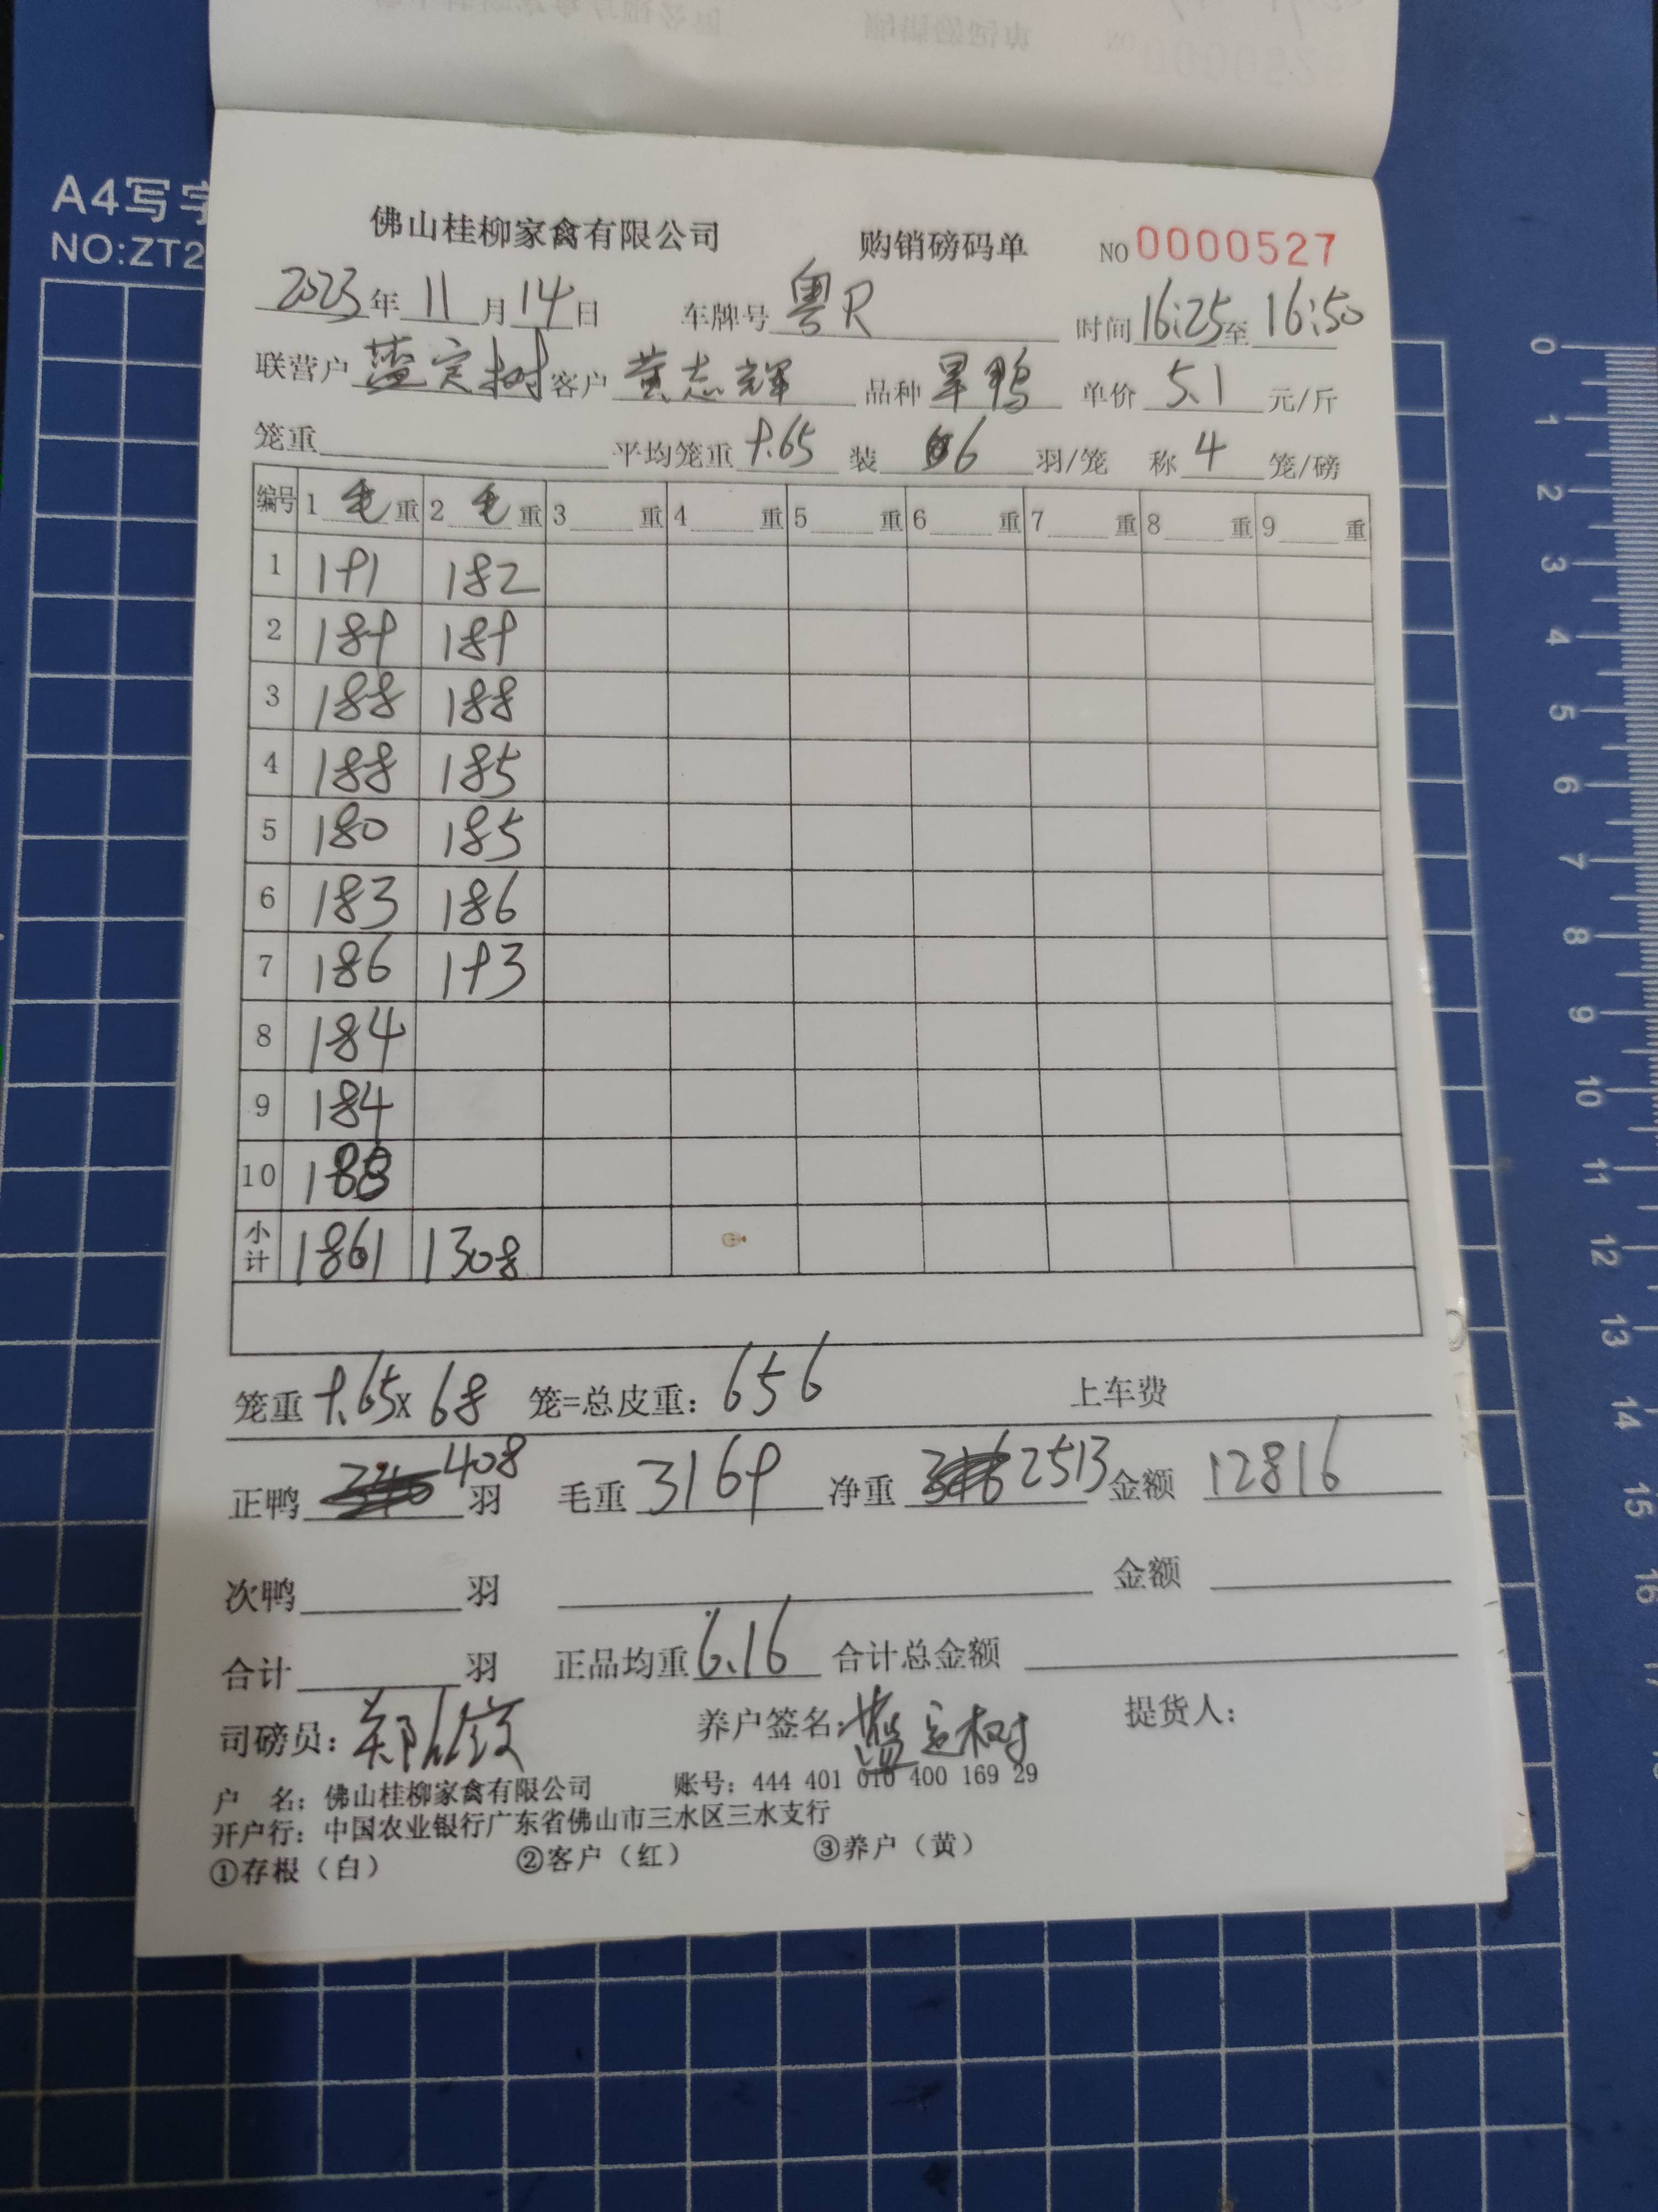 A4写字
NO:ZT2
佛山桂柳家禽有限公司 购销磅码单 NO 0000527
2023年 11 月 14 日 车牌号 粤R 时间 16:25 至 16:50
联营户 蓝定树 客户 黄志辉 品种 旱鸭 单价 5.1 元/斤
笼重 平均笼重 9.65 装 6 羽/笼 称 4 笼/磅
编号 1 毛 重 2 毛 重 3 重 4 重 5 重 6 重 7 重 8 重 9 重
1 191 182
2 189 189
3 188 188
4 188 185
5 180 185
6 183 186
7 186 193
8 184
9 184
10 188
小计 1861 1308
笼重 9.65 x 68 笼=总皮重: 656 上车费
正鸭 408 羽 毛重 3169 净重 2513 金额 12816
次鸭 羽 金额
合计 羽 正品均重 6.16 合计总金额
司磅员: 养户签名: 蓝定树 提货人:
户 名: 佛山桂柳家禽有限公司 账号: 444 401 010 400 169 29
开户行: 中国农业银行广东省佛山市三水区三水支行
①存根(白) ②客户(红) ③养户(黄)
0
1
2
3
4
5
6
7
8
9
10
11
12
13
14
15
16